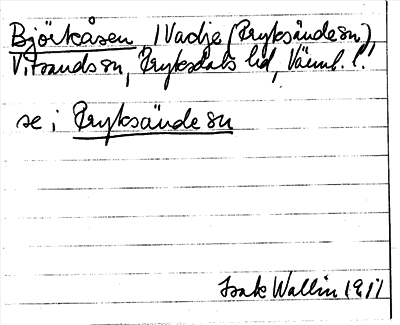 Björkåsen, i Vadje (Fryksände sn),
Vitsands sn, Fryksdals hd, Värml. l.
se i Fryksände sn
Isak Wallin 1911